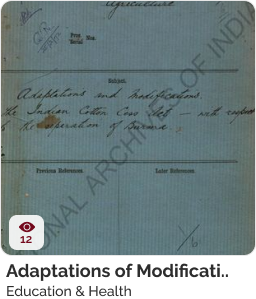 Agriculture
Prog. Nos.
Serial
Subject.
Adaptations and Modifications.
the Indian Cotton Cess Act – with respect
to the separation of Burma.
Previous References.
Later References.
NATIONAL ARCHIVES OF INDIA
12
Adaptations of Modificati..
Education & Health